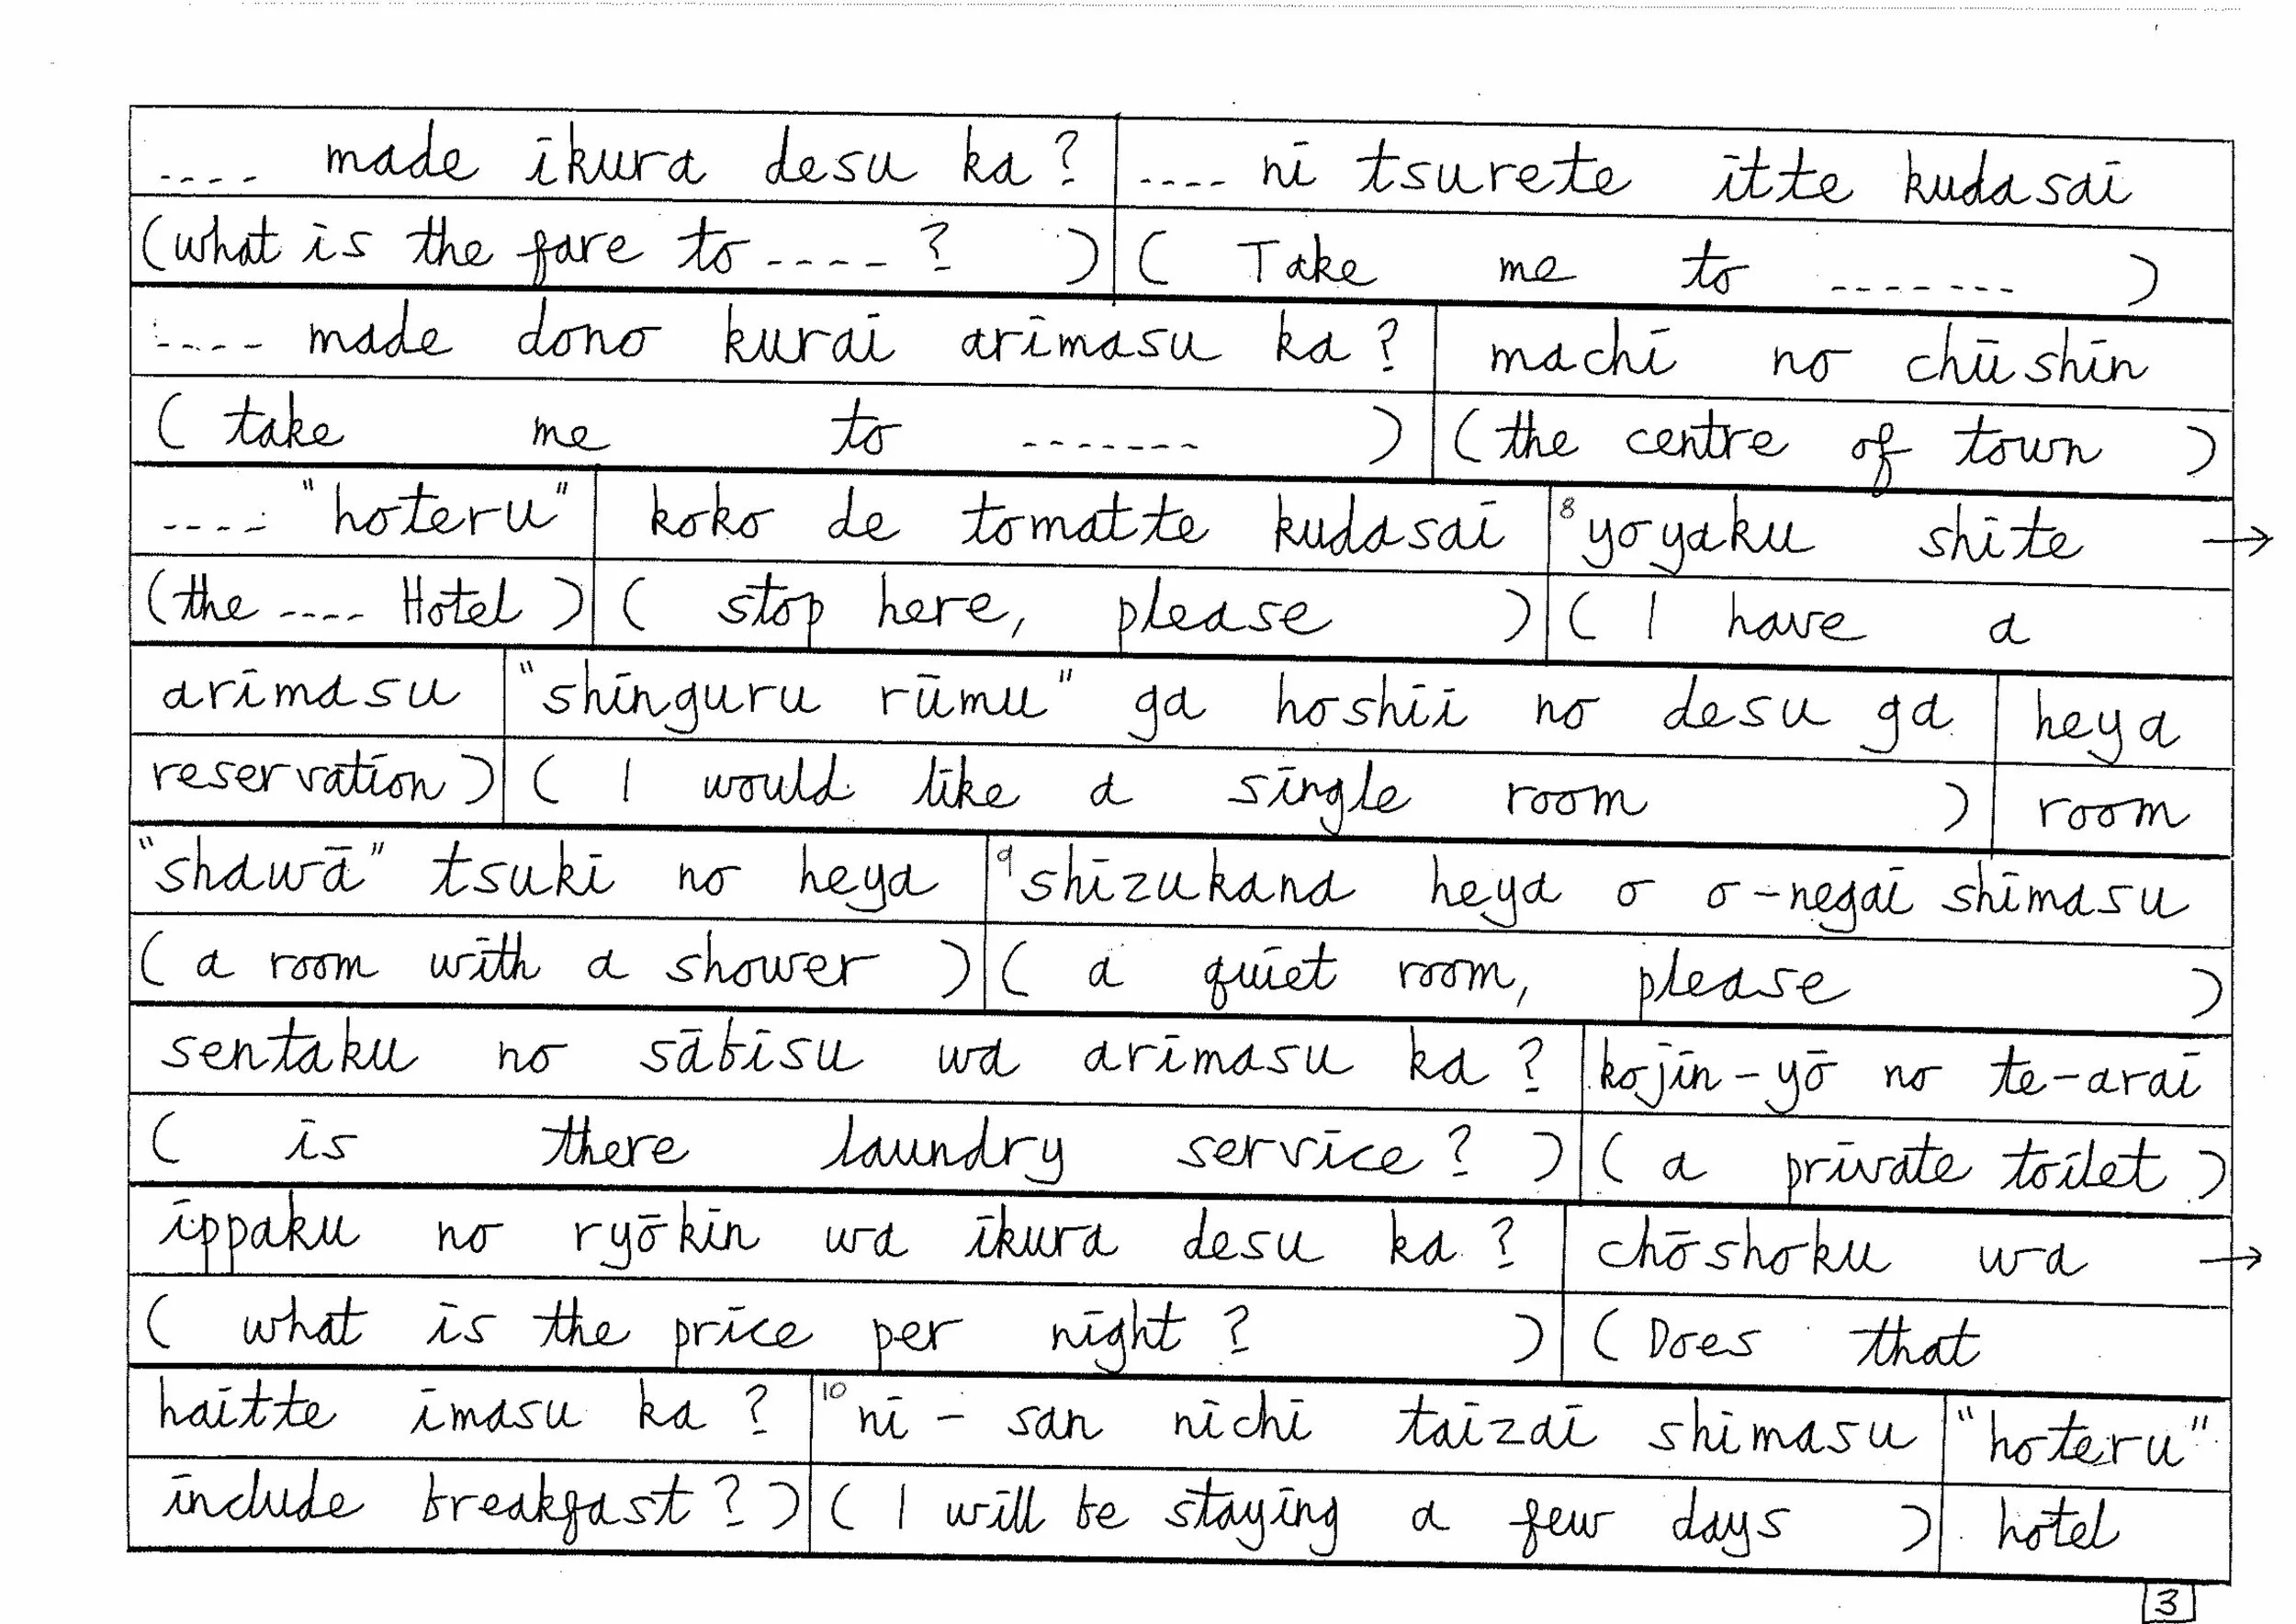 ---- made ikura desu ka? ---- ni tsurete itte kudasai
(what is the fare to ---- ? ) ( Take me to ------- )
---- made dono kurai arimasu ka? machi no chūshin
( take me to ------- ) (the centre of town )
---- "hoteru" koko de tomatte kudasai 8 yoyaku shite →
(the ---- Hotel ) ( stop here, please ) ( I have a
arimasu "shinguru rūmu" ga hoshii no desu ga heya
reservation) ( I would like a single room ) room
"shawā" tsuki no heya 9 shizukana heya o o-negai shimasu
( a room with a shower ) ( a quiet room, please )
sentaku no sābisu wa arimasu ka? kojin-yō no te-arai
( is there laundry service? ) ( a private toilet )
ippaku no ryōkin wa ikura desu ka? chōshoku wa →
( what is the price per night? ) ( Does that
haitte imasu ka? 10 ni - san nichi taizai shimasu "hoteru"
include breakfast? ) ( I will be staying a few days ) hotel
3